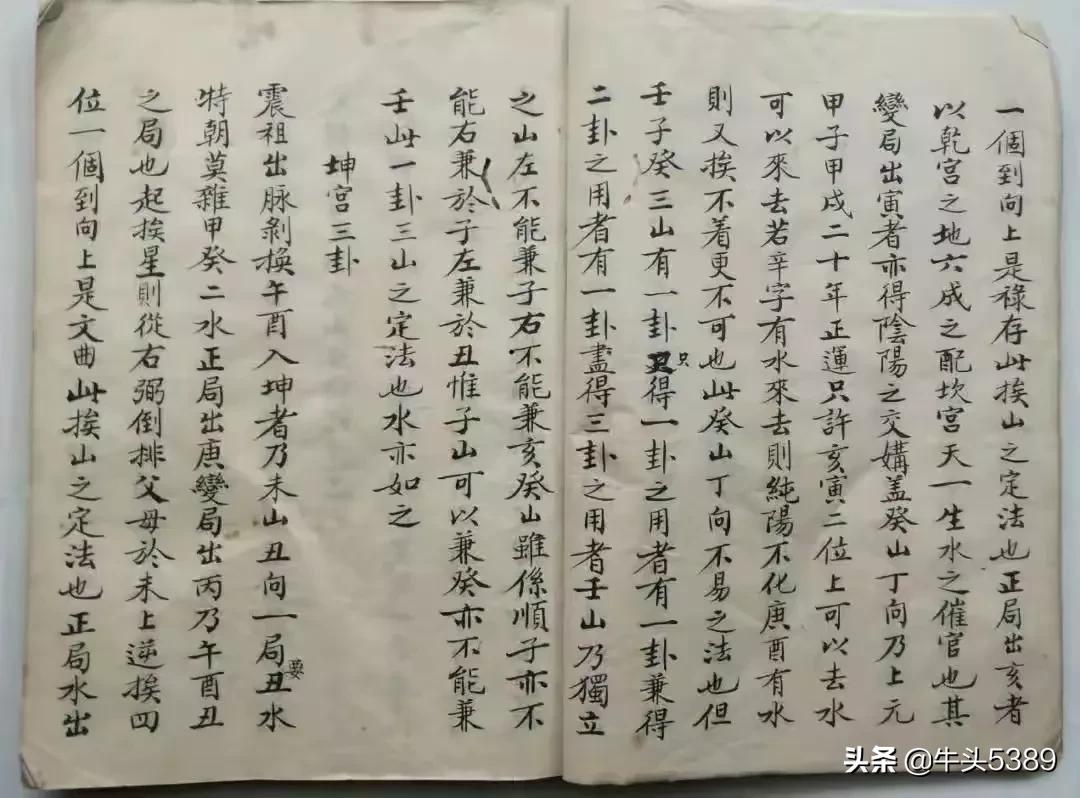 一個到向上是祿存此挨山之定法也正局出亥者
以乾宮之地六成之配坎宮天一生水之催官也其
變局出寅者亦得陰陽之交媾蓋癸山丁向乃上元
甲子甲戌二十年正運只許亥寅二位上可以去水
可以來去若辛字有水來去則純陽不化庚酉有水
則又挨不着更不可也此癸山丁向不易之法也但
壬子癸三山有一卦只得一卦之用者有一卦兼得
二卦之用者有一卦盡得三卦之用者壬山乃獨立
之山左不能兼子右不能兼亥癸山雖係順子亦不
能右兼於子左兼於丑惟子山可以兼癸亦不能兼
壬此一卦三山之定法也水亦如之
坤宮三卦
震祖出脉剝換午酉入坤者乃未山丑向一局要丑水
特朝莫雜甲癸二水正局出庚變局出丙乃午酉丑
之局也起挨星則從右弼倒排父母於未上逆挨四
位一個到向上是文曲此挨山之定法也正局水出
头条 @牛头5389